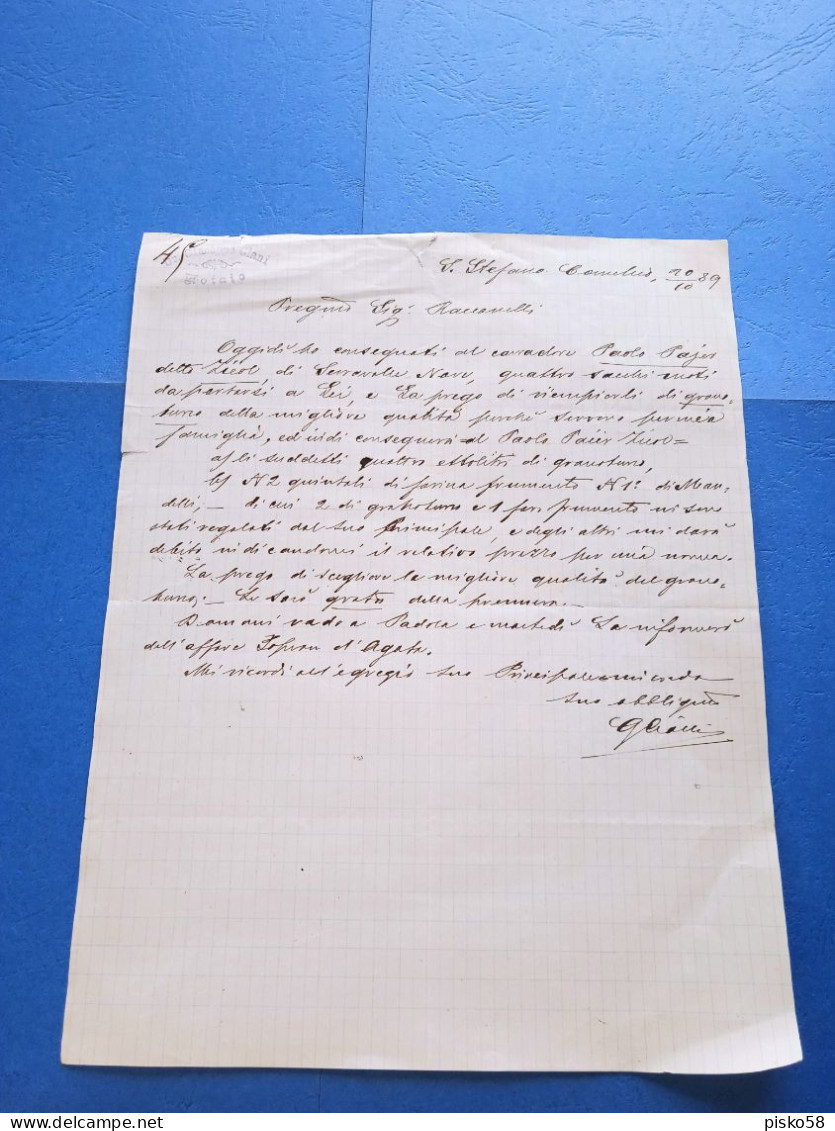 45
Notaio
S. Stefano Comelico, 20/10 89
Pregmo Sigr Raccanelli
Oggidì ho consegnati al carradore Paolo Pajer
detto Zicol di Serravalle Nave, quattro sacchi vuoti
da portarsi a Lei, e La prego di riempierli di grano-
turco della migliore qualità perchè servono per mia
famiglia, ed indi consegnerà al Paolo Paijer Zicol=
a) li suddetti quattro ettolitri di granoturco,
b) N 2 quintali di farina frumento N 1° di Man-
delli; - di cui 2 di granoturco e 1 far. frumento mi sono
stati regalati dal suo Principale, e degli altri mi darà
debito indicandomi il relativo prezzo per mia norma.
La prego di scegliere la migliore qualità del grano-
turco; - Le sarò grato della premura. -
Domani vado a Padola e martedì La informerò
dell'affare d'Agata.
Mi ricordi all'egregio suo Principale e mi creda
suo obbligmo